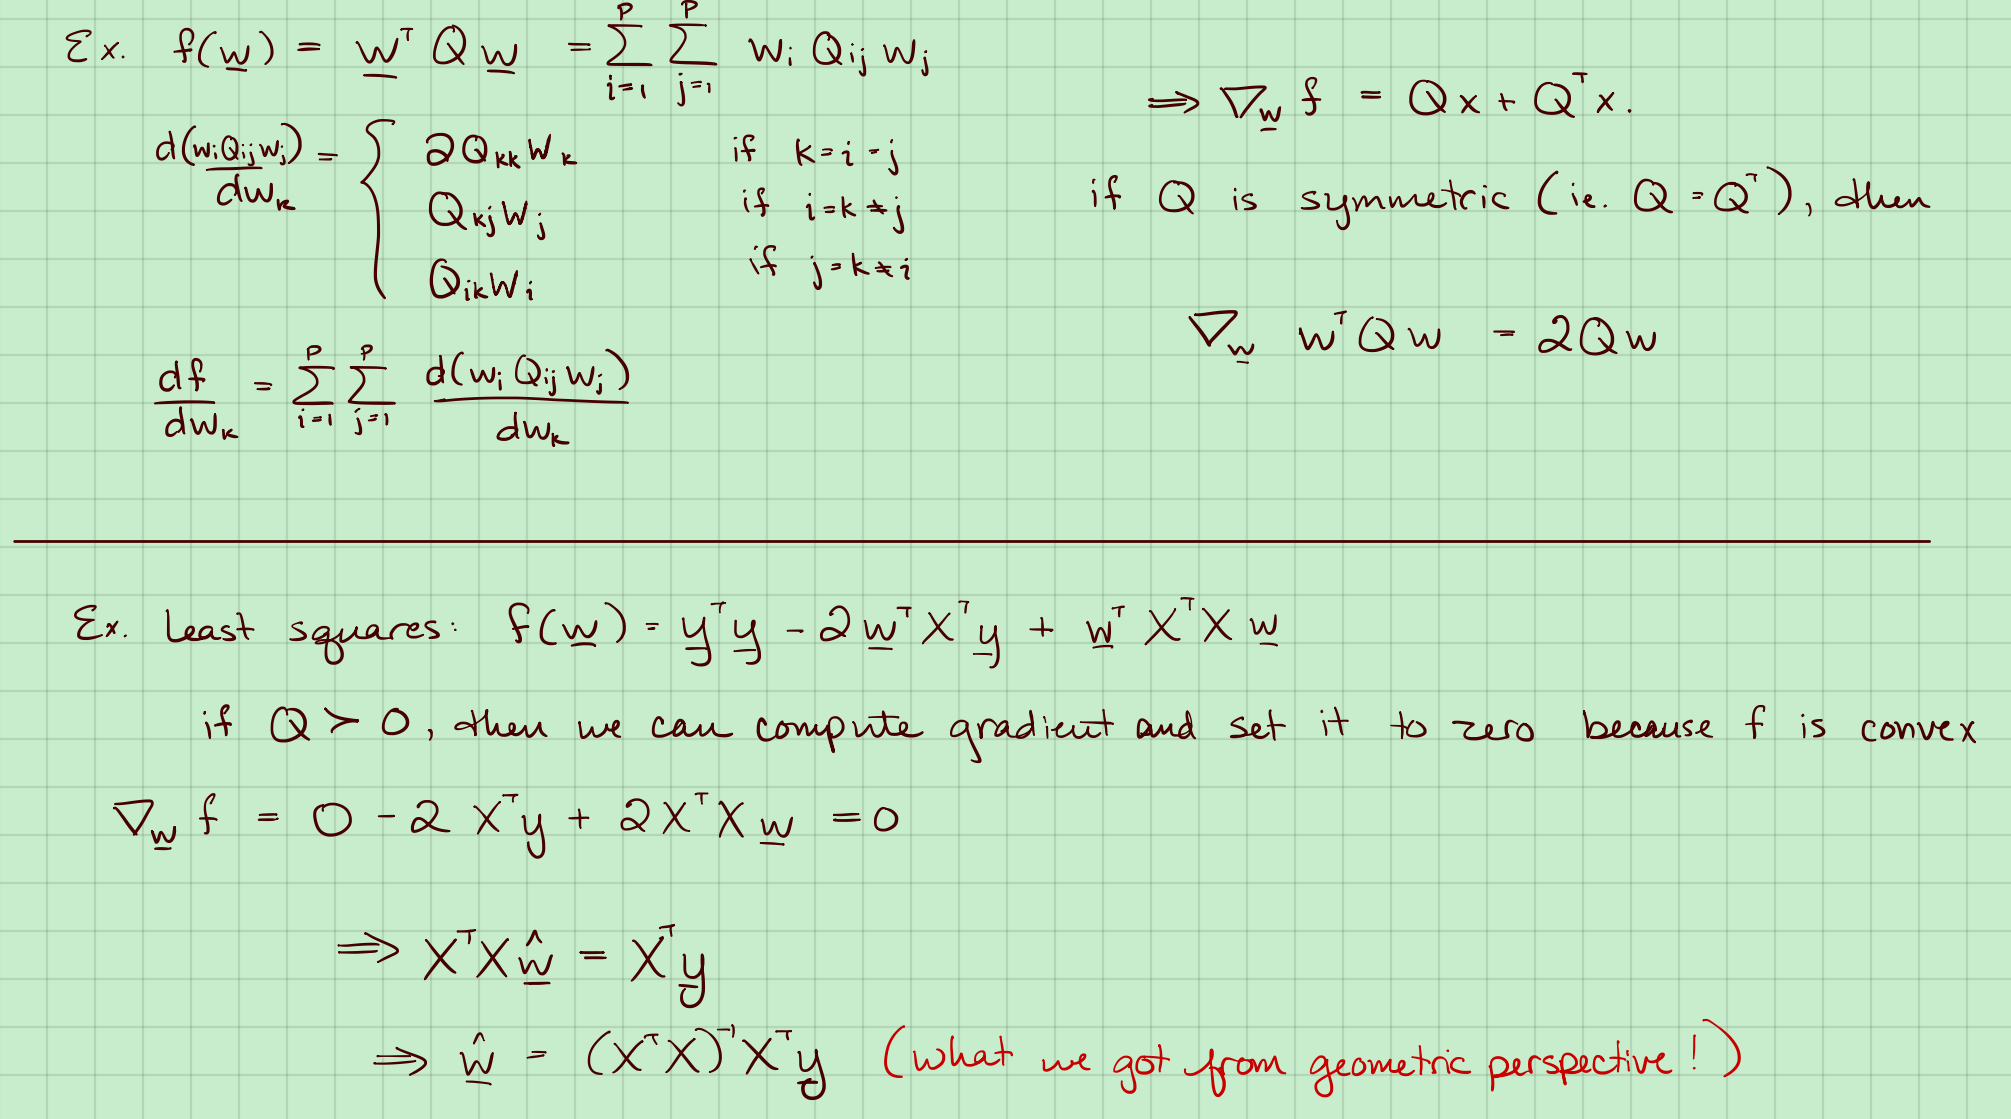 Ex. f(w) = wᵀ Q w = Σ_{i=1}^{p} Σ_{j=1}^{p} w_i Q_{ij} w_j
d(w_i Q_{ij} w_j)/dw_k = { 2Q_{kk} w_k if k = i = j
Q_{kj} w_j if i = k ≠ j
Q_{ik} w_i if j = k ≠ i
df/dw_k = Σ_{i=1}^{p} Σ_{j=1}^{p} d(w_i Q_{ij} w_j)/dw_k
⟹ ∇_w f = Qx + Qᵀx.
if Q is symmetric (ie. Q = Qᵀ), then
∇_w wᵀQw = 2Qw
Ex. Least squares: f(w) = yᵀy - 2wᵀXᵀy + wᵀXᵀXw
if Q ≻ 0, then we can compute gradient and set it to zero because f is convex
∇_w f = 0 - 2Xᵀy + 2XᵀXw = 0
⟹ XᵀXŵ = Xᵀy
⟹ ŵ = (XᵀX)⁻¹Xᵀy (what we got from geometric perspective!)